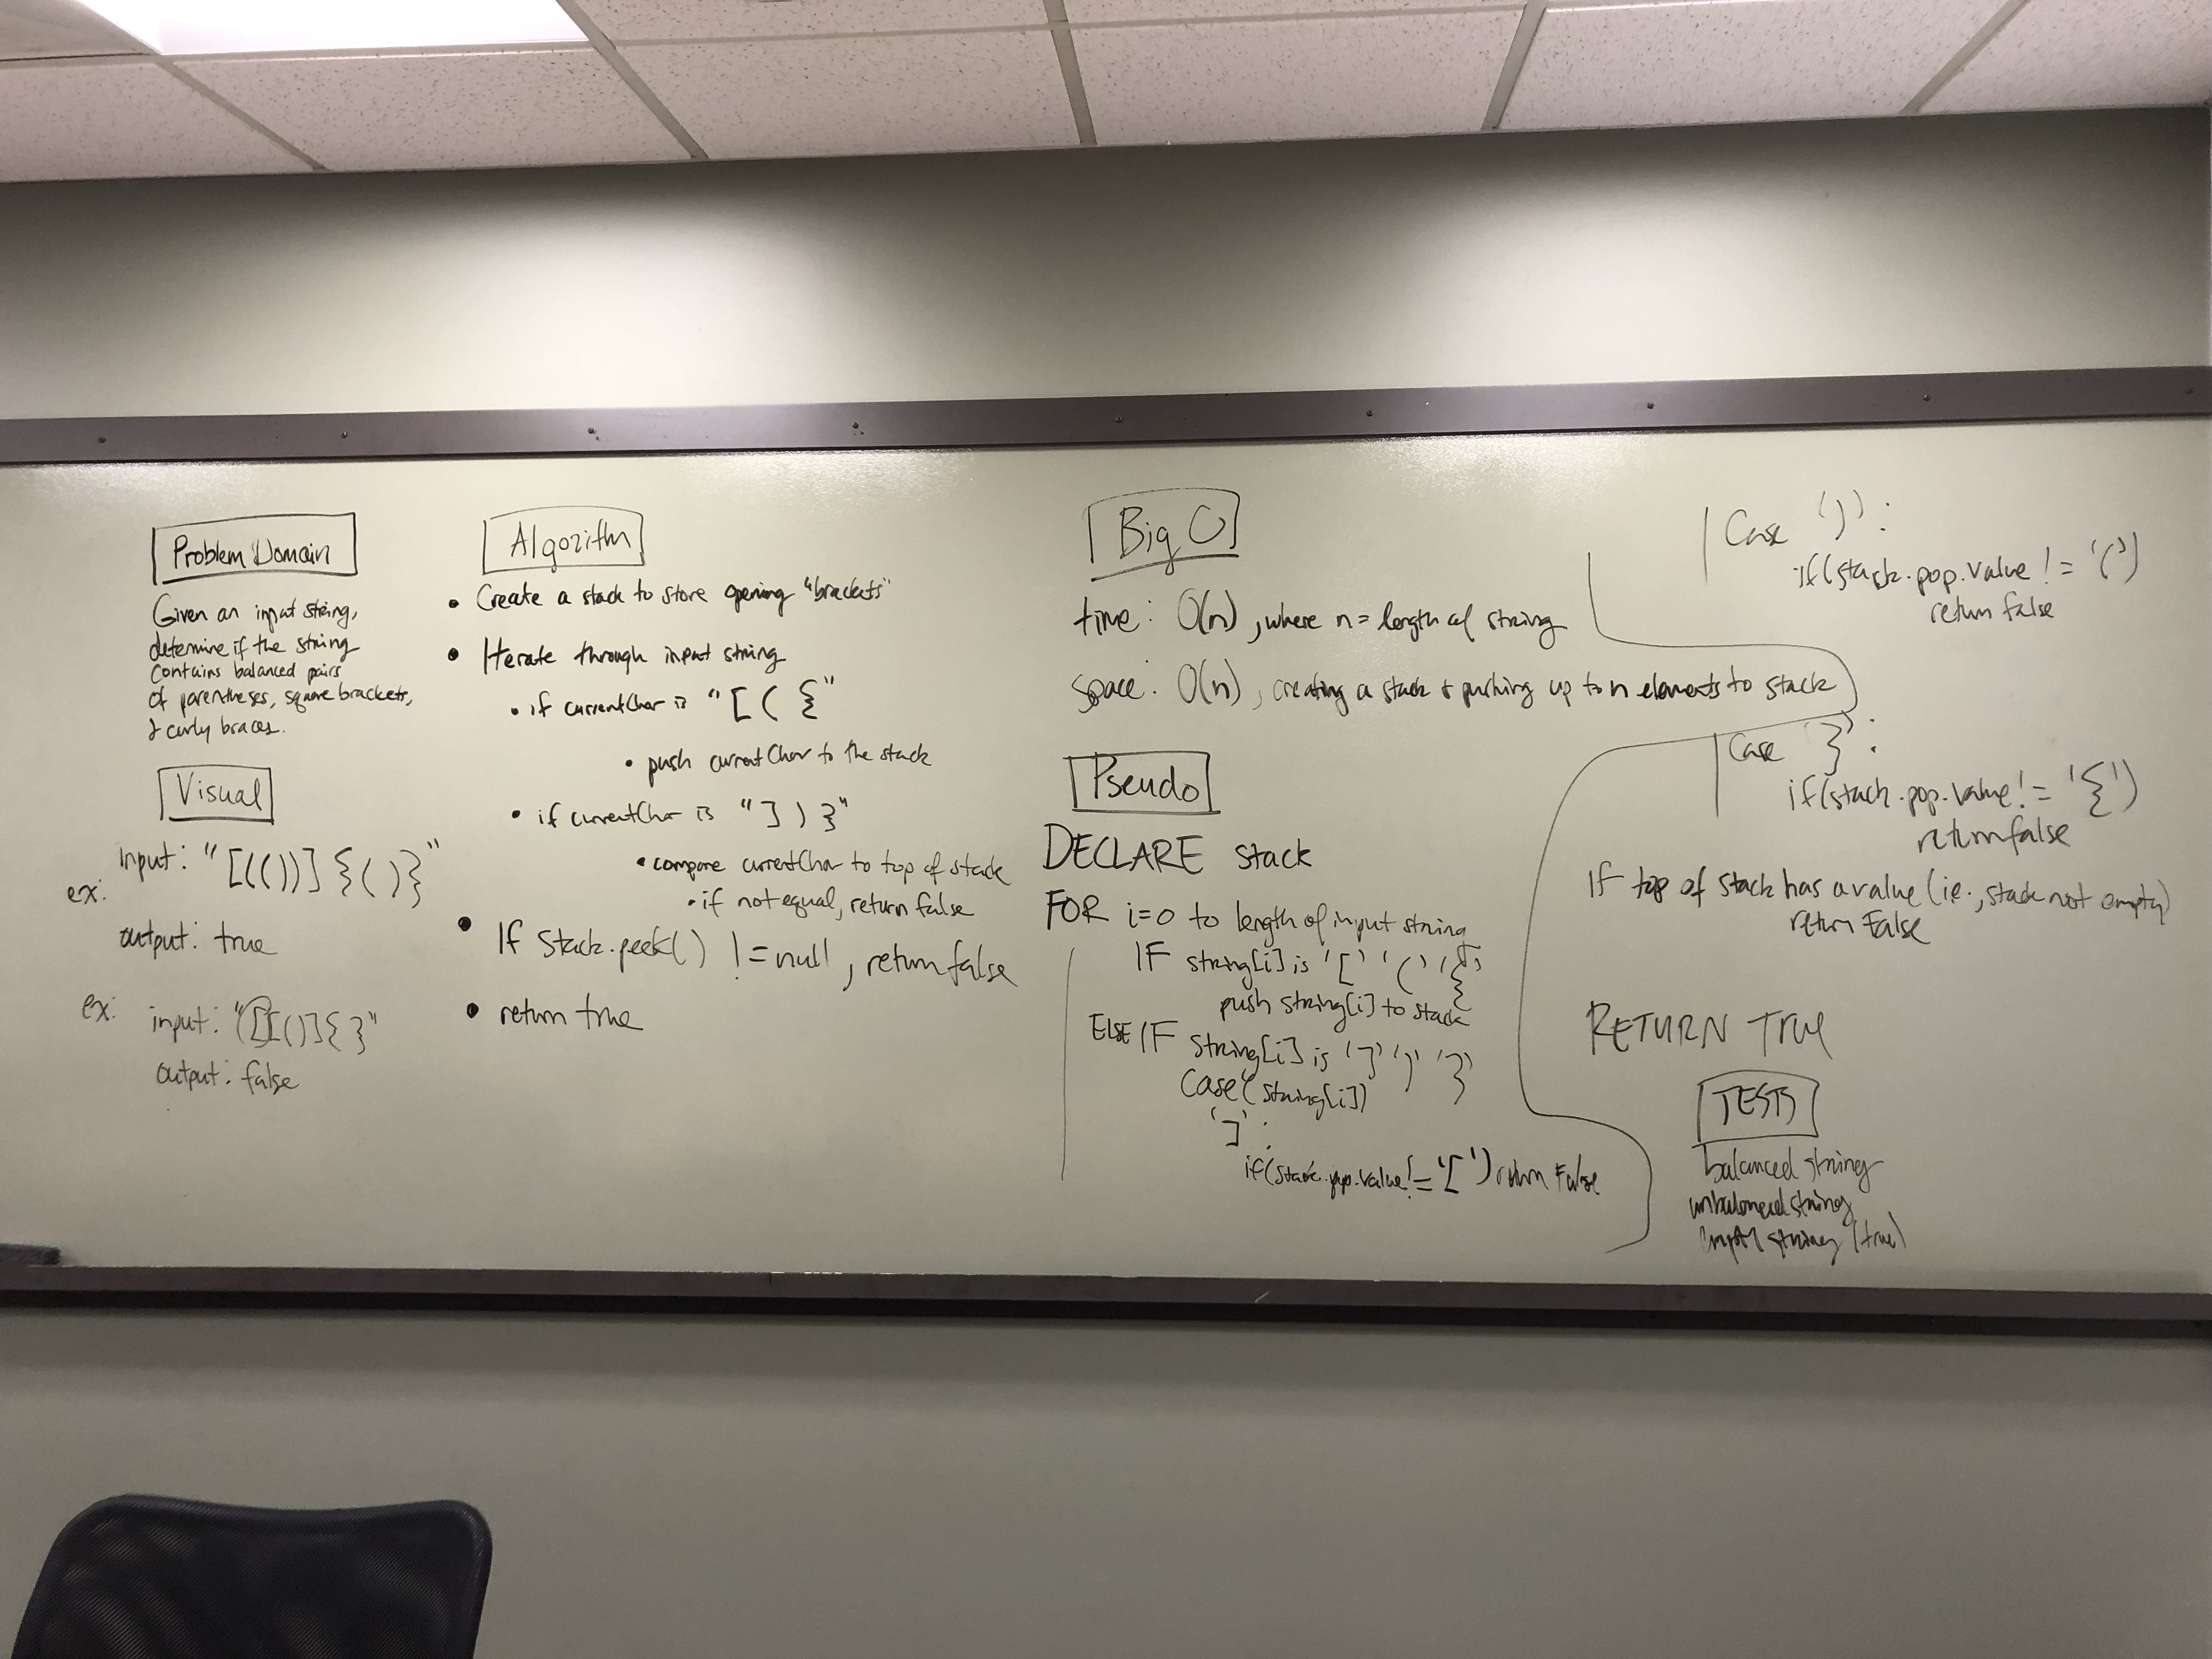 Problem Domain
Given an input string,
determine if the string
contains balanced pairs
of parentheses, square brackets,
& curly braces.
Visual
ex:
input: "[(())]{()}"
output: true
ex:
input: "([[()]{}"
output: false
Algorithm
• Create a stack to store opening "brackets"
• Iterate through input string
• if currentChar is "[ ( {"
• push currentChar to the stack
• if currentChar is "] ) }"
• compare currentChar to top of stack
• if not equal, return false
• If stack.peek() != null, return false
• return true
Big O
time: O(n), where n = length of string
space: O(n), creating a stack & pushing up to n elements to stack
Pseudo
DECLARE stack
FOR i=0 to length of input string
IF string[i] is '[' '(' '{'
push string[i] to stack
ELSE IF string[i] is ']' ')' '}'
Case(string[i])
']':
if(stack.pop.value != '[') return False
Case ')':
if(stack.pop.value != '(')
return false
Case '}':
if(stack.pop.value != '{')
return false
If top of stack has a value (ie., stack not empty)
return False
RETURN True
TESTS
balanced string
unbalanced string
empty string (true)